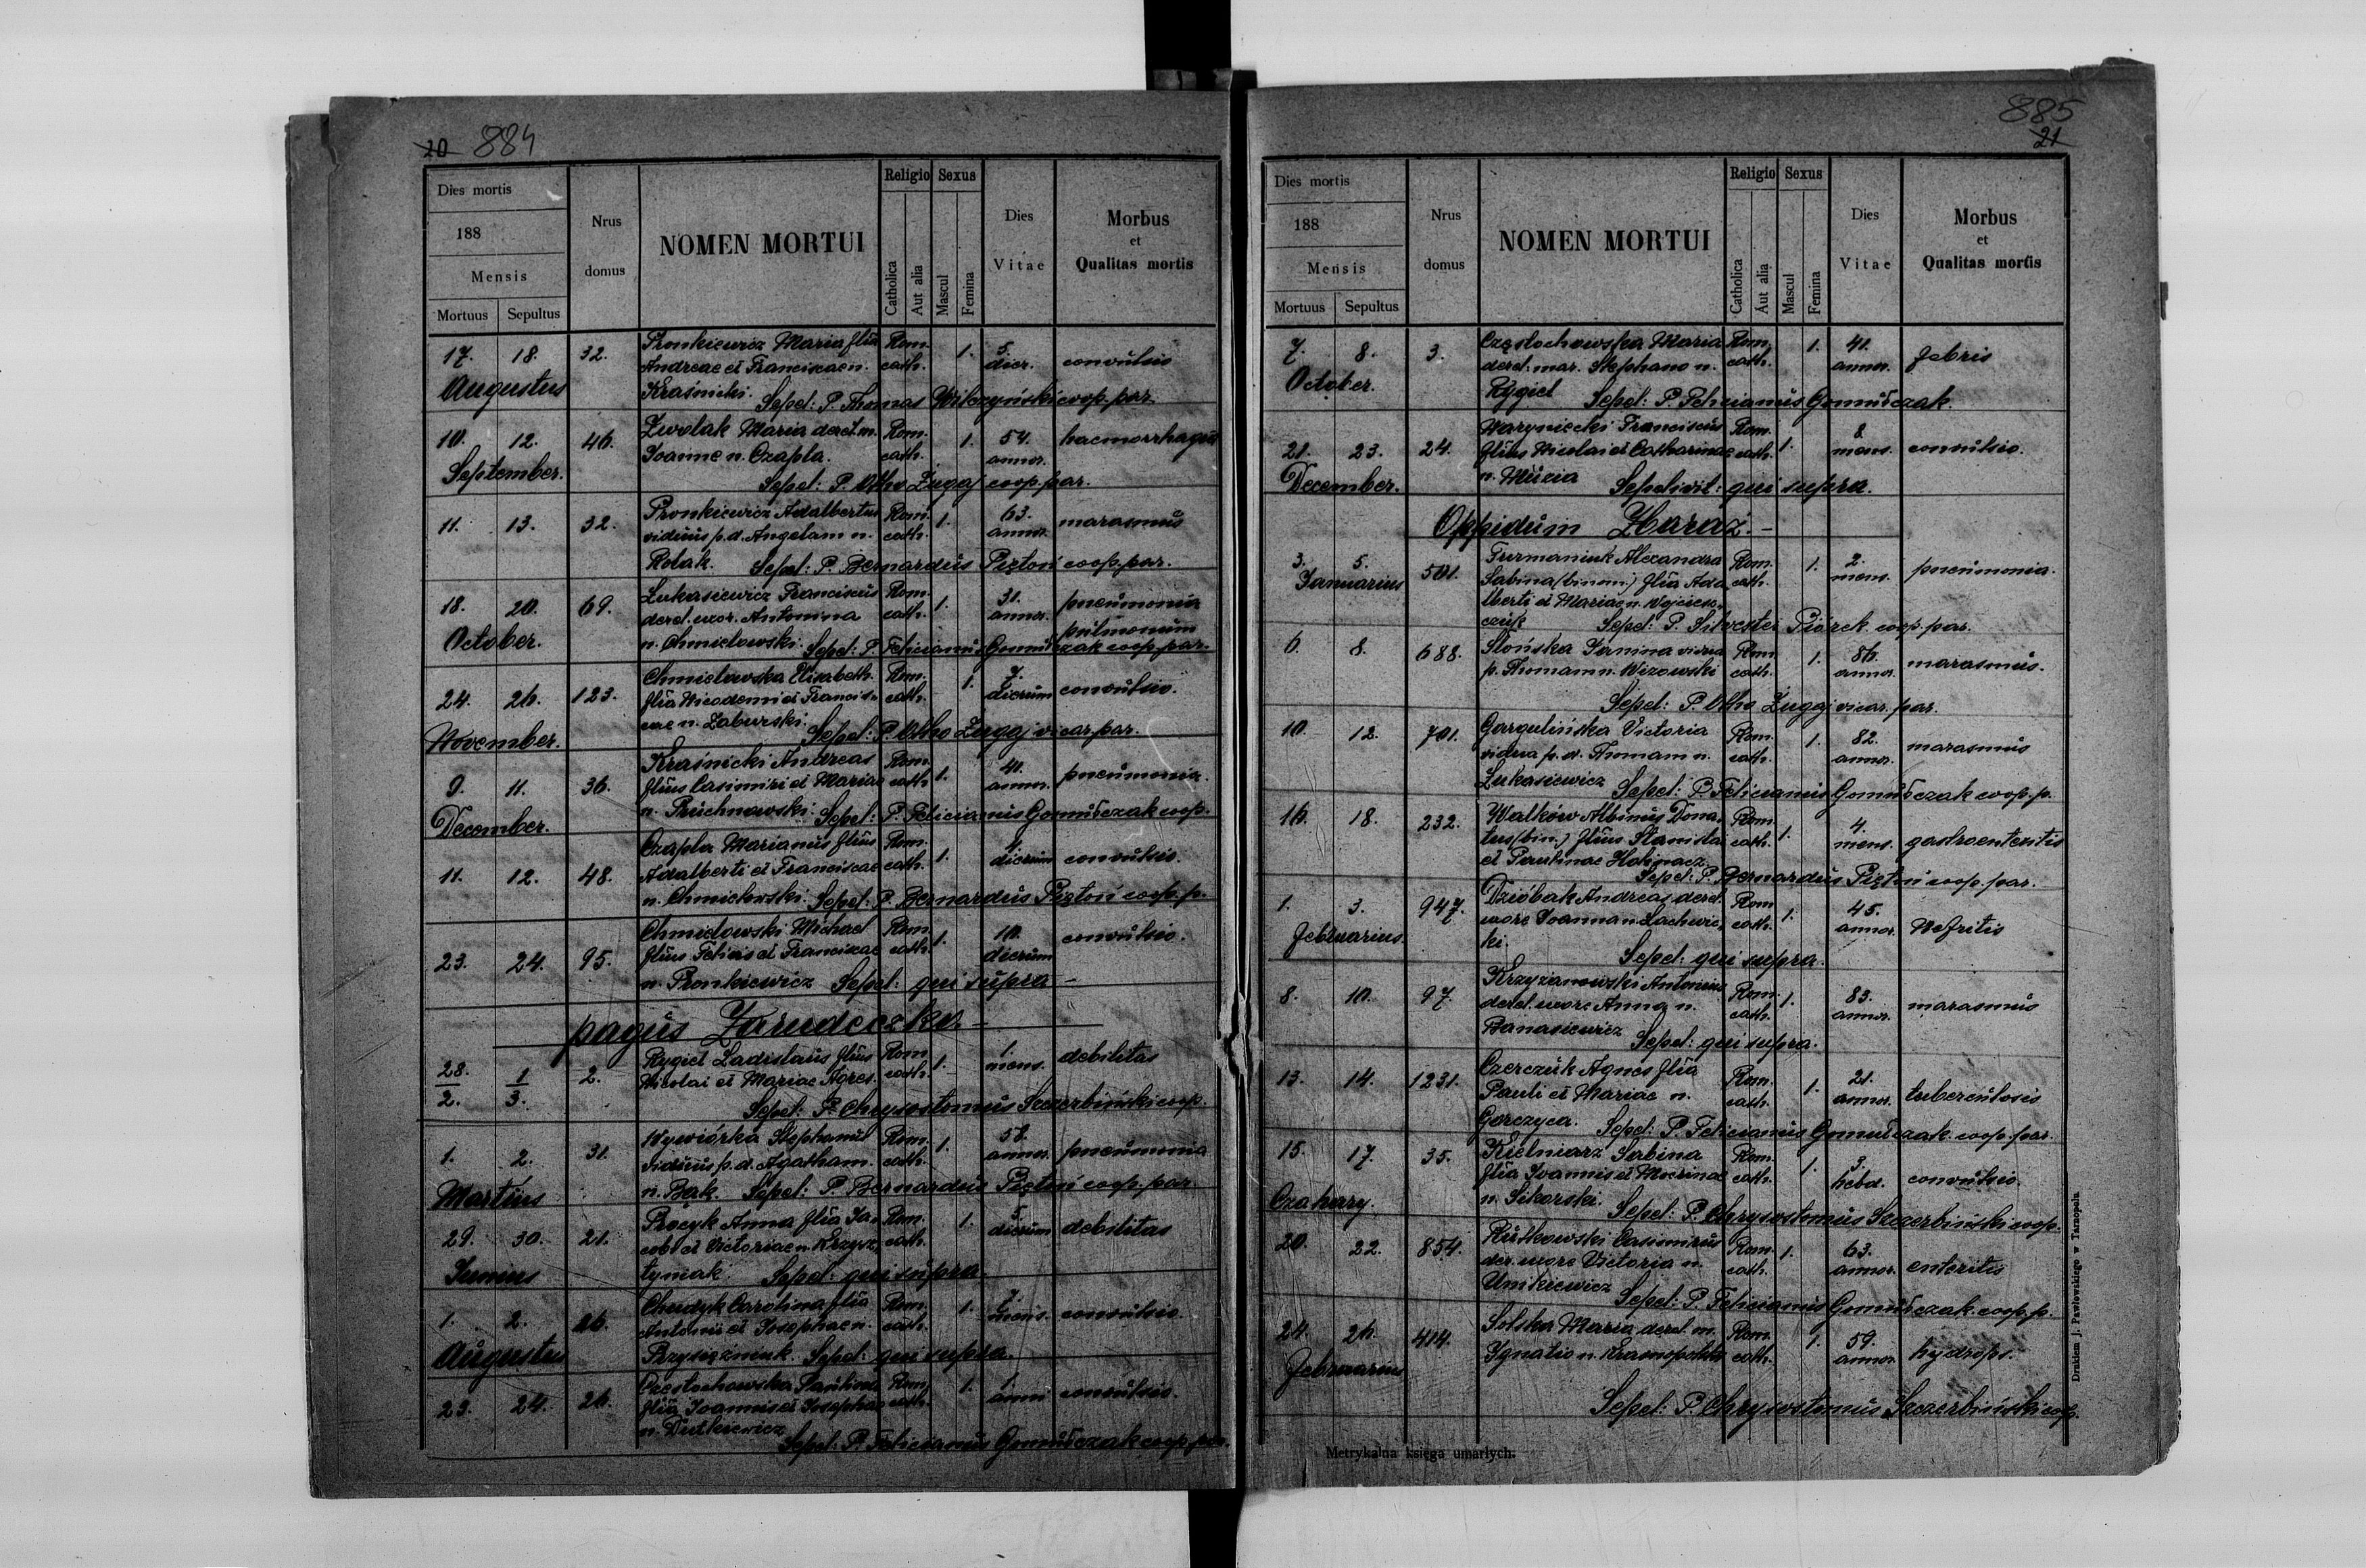 20 884
Dies mortis
188
Mensis
Mortuus Sepultus
Nrus domus
NOMEN MORTUI
Religio Sexus
Catholica
Aut alia
Mascul
Femina
Dies Vitae
Morbus
et
Qualitas mortis
17. 18. 32. Pronkiewicz Maria filia Rom. 1. 5.
Andreae et Franciscae n. cath. dier. convulsio
Augustus Kraśnicki. Sepel: P. Thomas Wilczyński coop. par.
10. 12. 46. Zwolak Maria derel. m. Rom. 1. 54. haemorrhagia
Joanne n. Czapla. cath. annor.
September. Sepel: P. Otho Zugaj coop. par.
11. 13. 32. Pronkiewicz Adalbertus Rom. 1. 63. marasmus
viduus p. d. Angelam n. cath. annor.
Rolak. Sepel: P. Bernardus Pięzton coop. par.
18. 20. 69. Łukasiewicz Franciscus Rom. 1. 31. pneumonia
derel. uxor. Antonina annor. pulmonum
October. n. Chmielowski. Sepel: P. Felicianus Gomułczak coop. par.
24. 26. 123. Chmielowska Elisabeth. Rom. 1. 7.
filia Nicodemi et Francis- cath. dierum convulsio.
cae n. Zaburski.
November. Sepel: P. Otho Zugaj vicar. par.
9. 11. 36. Kraśnicki Andreas Rom. 1. 41. pneumonia.
filius Casimiri et Mariae cath. annor.
n. Pruchnowski. Sepel: P. Felicianus Gomułczak coop.
December.
11. 12. 48. Czapla Marianus filius Rom. 1.
Adalberti et Franciscae cath. dierum convulsio.
n. Chmielowski. Sepel: P. Bernardus Pięzton coop. p.
23. 24. 95. Chmielowski Michael Rom. 1. 10. convulsio.
filius Felicis et Franciscae cath. dierum
n. Pronkiewicz Sepel: qui supra –
pagus Zarudeczko. –
28. 2. 1 3. 2. Rygiel Ladislaus filius Rom. 1. 1. debilitas
Nicolai et Mariae Agres. cath. mens.
Sepel: P. Chrysostomus Szczerbiński coop.
1. 2. 31. Wywiórka Stephanus Rom. 1. annor. pneumonia
viduus p. d. Agatham. cath.
Martius n. Bąk. Sepel: P. Bernardus Pięzton coop. par.
29. 30. 21. Procyk Anna filia Ja- Rom. 1. 5. debilitas
cobi et Victoriae n. Krzysz- cath. dierum
Junius tyniak. Sepel: qui supra
1. 2. 26. Chudzyk Carolina filia Rom. 1. mens. convulsio.
Antonii et Josephae n. cath.
Augustus Przysiężniuk. Sepel: qui supra.
23. 24. 26. Częstochowska Paulina Rom. 1. 1. convulsio.
filia Joannis et Josephae cath. anni
n. Dutkiewicz
Sepel: P. Felicianus Gomułczak coop. par.
885
21
Dies mortis
188
Mensis
Mortuus Sepultus
Nrus domus
NOMEN MORTUI
Religio Sexus
Catholica
Aut alia
Mascul
Femina
Dies Vitae
Morbus
et
Qualitas mortis
7. 8. 3. Częstochowska Maria Rom. 1. 41. febris
derel. mar. Stephano n. cath. annor.
October. Rygiel Sepel: P. Felicianus Gomułczak.
21. 23. 24. Waryniecki Franciscus Rom. 1. 8. convulsio.
filius Nicolai et Catharinae cath. mens.
December. n. Mucia Sepelivit: qui supra.
Oppidum Zbaraż. –
3. 5. 501. Furmaniuk Alexandra Rom. 1. 2. pneumonia.
Januarius Sabina (binom.) filia Ada- cath. mens.
lberti et Mariae n. Wojciesz-
czuk Sepel: P. Silvester Piórek coop. par.
6. 8. 688. Słońska Janina vidua Rom. 1. 86. marasmus.
p. Thomam n. Wizowski cath. annor.
Sepel: P. Otho Zugaj vicar. par.
10. 12. 701. Gargulińska Victoria Rom. 1. 82. marasmus
vidua p. d. Thomam n. cath. annor.
Łukasiewicz Sepel: P. Felicianus Gomułczak coop. p.
16. 18. 232. Walków Albinus Dona- Rom. 1. 4.
tus (bin.) filius Stanislai cath. mens. gastroenteritis
et Paulinae Holinacz.
Sepel: P. Bernardus Pięzton coop. par.
1. 3. 947. Dzióbak Andreas derel. Rom. 1. 45.
uxore Joanna n. Lachwic- cath. annor. Nefritis
Februarius. ki.
Sepel: qui supra.
8. 10. 97. Krzyżanowski Antonius Rom. 1. 83. marasmus
derel. uxore Anna n. cath. annor.
Banasiewicz Sepel: qui supra.
13. 14. 1231. Czerczuk Agnes filia Rom. 1. 21.
Pauli et Mariae n. cath. annor. tuberculosis
Gorczyca. Sepel: P. Felicianus Gomułczak coop. par.
15. 17. 35. Kielniarz Sabina Rom. 1. 3.
filia Joannis et Mocrinae cath. hebd. convulsio.
Czahary. n. Sikorski. Sepel: P. Chrysostomus Szczerbiński coop.
20. 22. 854. Rutkowski Casimirus Rom. 1. 63.
der. uxore Victoria n. cath. annor. enteritis
Unikiewicz Sepel: P. Felicianus Gomułczak coop. p.
24. 26. 414. Solska Maria derel. m. Rom. 1. 59. hydrops.
Ignatio n. Krasnopolska cath. annor.
Februarius
Sepel: P. Chrysostomus Szczerbiński coop.
Metrykalna księga umarłych.
Drukiem J. Pawłowskiego w Tarnopolu